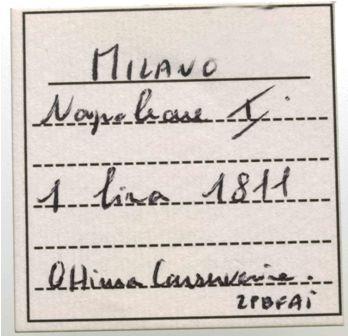 MILANO
Napoleone I.
1 lira 1811
Ottima Conservazione.
ZPBFAI